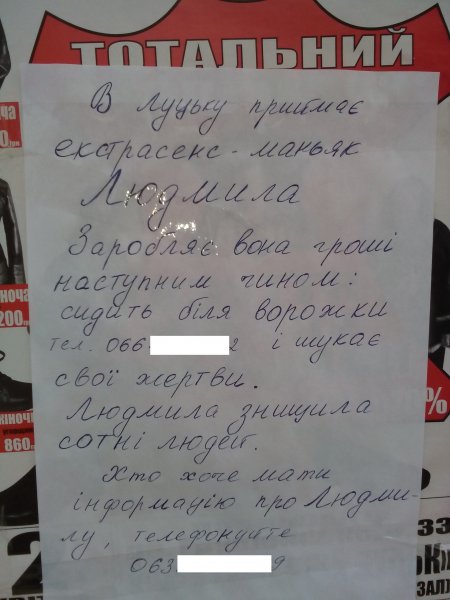 ТОТАЛЬНИЙ
В Луцьку приймає
екстрасенс-маньяк
Людмила
Заробляє вона гроші
наступним чином:
сидить біля ворожки
тел. 066 2 і шукає
свої жертви.
Людмила знищила
сотні людей.
Хто хоче мати
інформацію про Людми-
лу, телефонуйте
063 9
ІНОЧА
200
ЖІНОЧІ
860
%